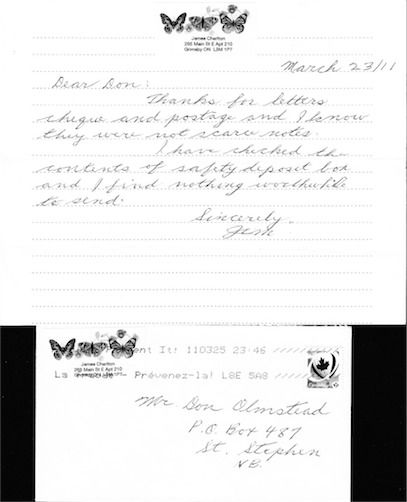 James Charlton
255 Main St E Apt 210
Grimsby ON L3M 1P7
March 23/11
Dear Don:
Thanks for letters
cheque and postage and I know
they were not scarce notes.
I have checked the
contents of safety deposit box
and I find nothing worthwhile
to send.
Sincerely,
Jim
ent It! 110325 23:46
James Charlton
255 Main St E Apt 210
La Prévenez-la! L8E 5A8
Mr Don Olmstead
P.O. Box 487
St. Stephen
N.B.